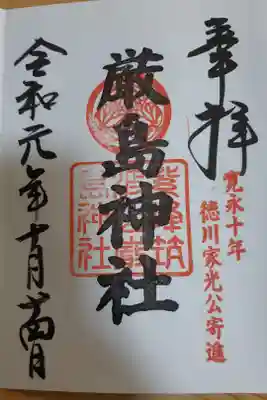 奉拝
寛永十年
徳川家光公寄進
厳島神社
令和元年十月廿四日